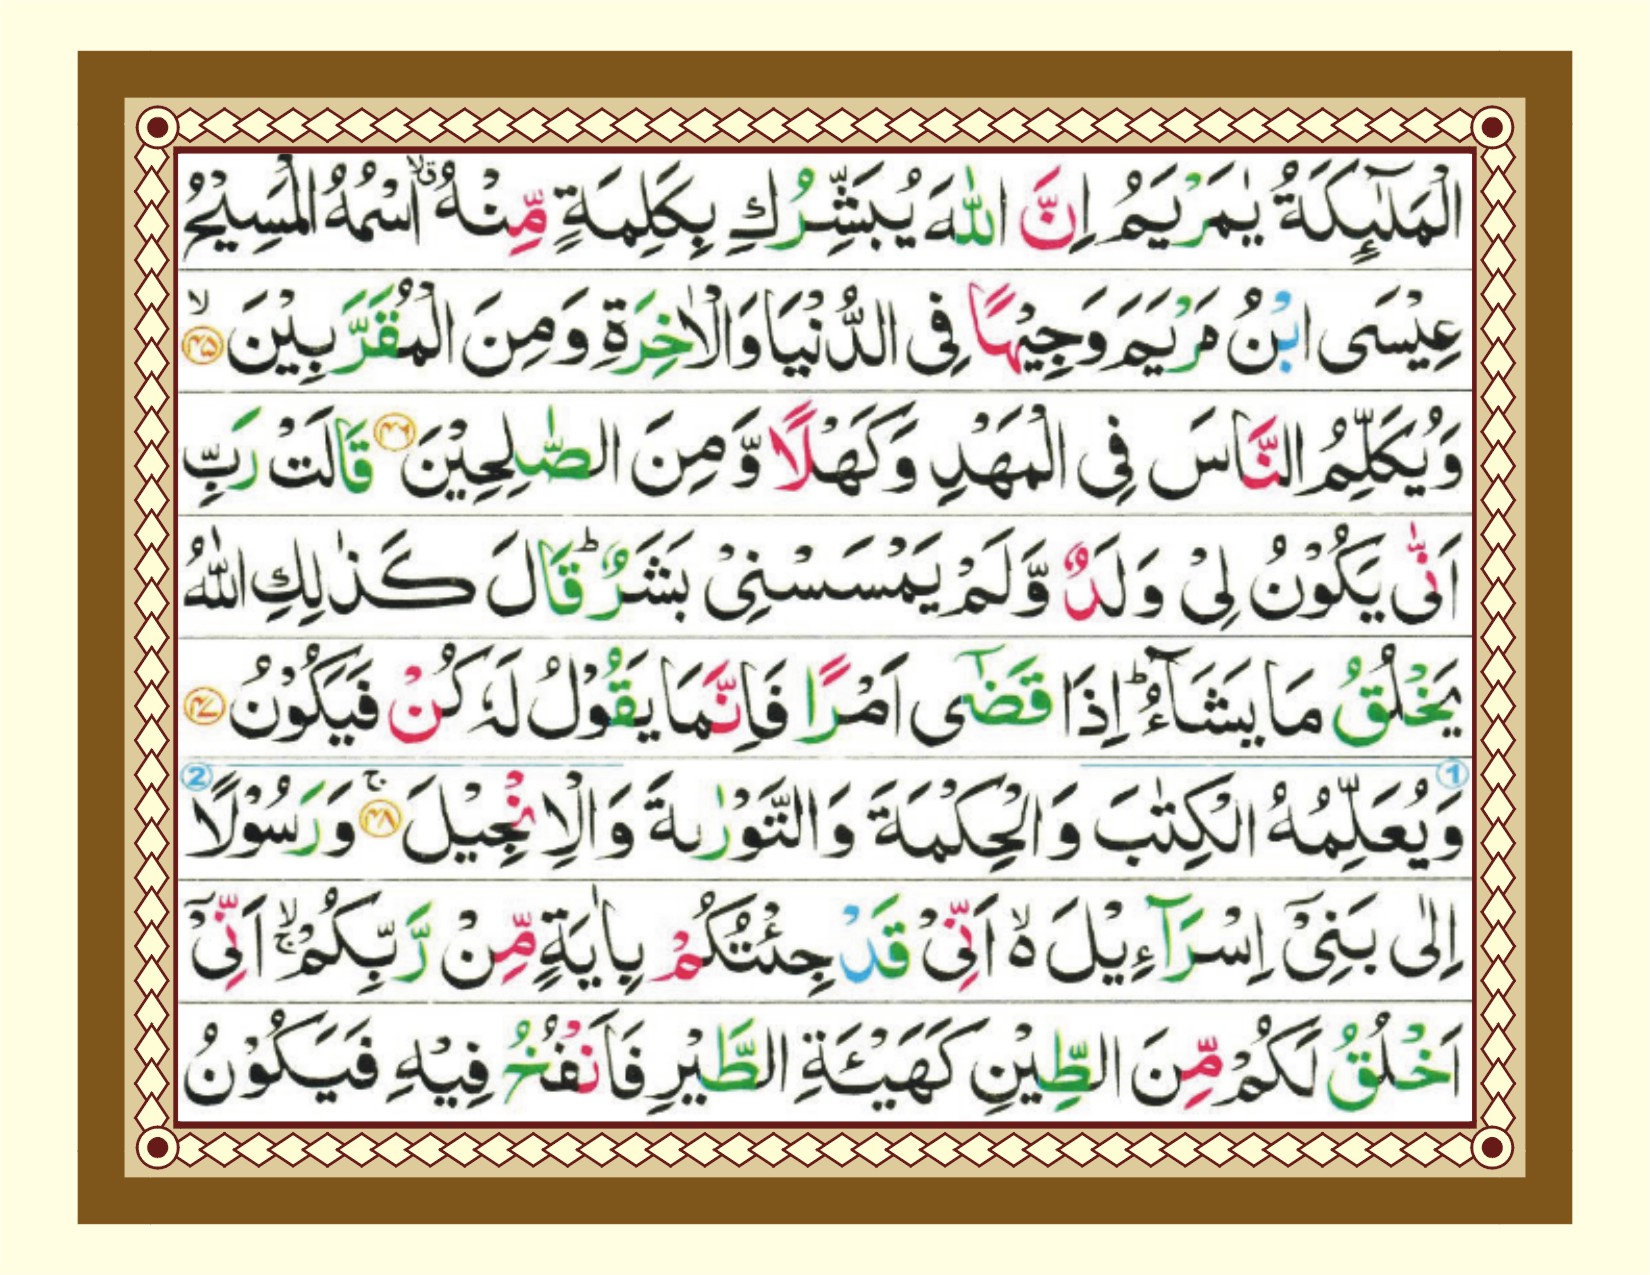 الْمَلٰٓئِكَةُ يٰمَرْيَمُ اِنَّ اللّٰهَ يُبَشِّرُكِ بِكَلِمَةٍ مِّنْهُ ۖۗ اسْمُهُ الْمَسِيْحُ
عِيْسَى ابْنُ مَرْيَمَ وَجِيْهًا فِى الدُّنْيَا وَالْاٰخِرَةِ وَمِنَ الْمُقَرَّبِيْنَ ۙ ۴۵
وَيُكَلِّمُ النَّاسَ فِى الْمَهْدِ وَكَهْلًا وَّمِنَ الصّٰلِحِيْنَ ۴۶ قَالَتْ رَبِّ
اَنّٰى يَكُوْنُ لِىْ وَلَدٌ وَّلَمْ يَمْسَسْنِىْ بَشَرٌ ؕ قَالَ كَذٰلِكِ اللّٰهُ
يَخْلُقُ مَا يَشَآءُ ؕ اِذَا قَضٰٓى اَمْرًا فَاِنَّمَا يَقُوْلُ لَهٗ كُنْ فَيَكُوْنُ ۴۷
1 2
وَيُعَلِّمُهُ الْكِتٰبَ وَالْحِكْمَةَ وَالتَّوْرٰىةَ وَالْاِنْجِيْلَ ۚ ۴۸ وَرَسُوْلًا
اِلٰى بَنِىْٓ اِسْرَآءِيْلَ ۙ۬ اَنِّىْ قَدْ جِئْتُكُمْ بِاٰيَةٍ مِّنْ رَّبِّكُمْ ۙۚ اَنِّىْٓ
اَخْلُقُ لَكُمْ مِّنَ الطِّيْنِ كَهَيْــَٔةِ الطَّيْرِ فَاَنْفُخُ فِيْهِ فَيَكُوْنُ